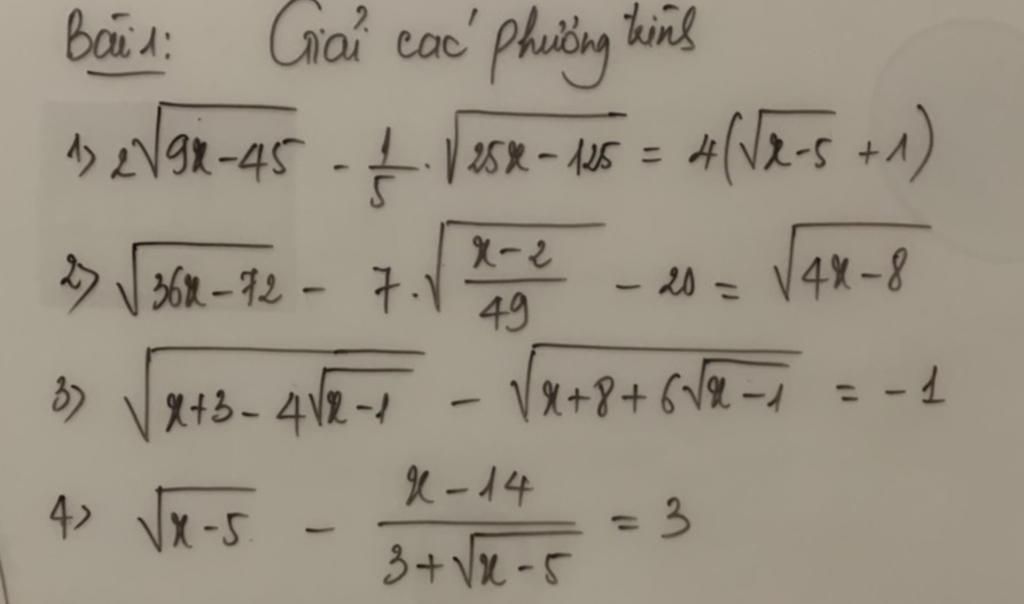 Bài 1: Giải các phương trình
1) 2√(9x-45) - 1/5 . √(25x-125) = 4(√(x-5) + 1)
2) √(36x-72) - 7.√((x-2)/49) - 20 = √(4x-8)
3) √(x+3-4√(x-1)) - √(x+8+6√(x-1)) = -1
4) √(x-5) - (x-14)/(3+√(x-5)) = 3